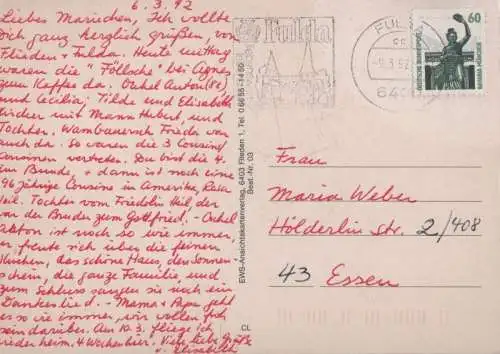 6.3.92
Liebes Mariechen, Ich wollte
Dich ganz herzlich grüßen, von
Flieden + Fulda. Heute mittag
waren die "Föllsche" bei Agnes
zum Kaffee da. Onkel Anton (86)
und Cecilia, Tilde und Elisabeth
Kircher mit Mann Hubert, und
Tochter. Frieda war
auch da. So waren die 3 Cousin/
Cousinen vertreten. Du bist die 4.
im Bunde + dann ist noch eine
96 jährige Cousine in Amerika,
Heil. Tochter vom Fridolin Heil, der
war der Bruder zum Gottfried. - Onkel
Anton ist noch so wie immer,
er freute sich über die feinen
Kuchen, das schöne Haus, den Sonnen-
schein, die ganze Familie, und
zum Schluss sangen sie noch ein
Dankeslied. - Mama + Papa geht
es so wie immer, wir wollen froh
sein darüber. Am 10.3. fliege ich
wieder heim. 4 Wochen hier. Viele liebe Grüße
v. Elisabeth
EWS-Ansichtskartenverlag, 6403 Flieden 1, Tel. 0 66 55-14 60
Best.-Nr. 03
CL
Fulda
FULDA
-9.3.92
640
60
DEUTSCHE BUNDESPOST
BAVARIA MÜNCHEN
Frau
Maria Weber
Hölderlin str. 2/408
43 Essen